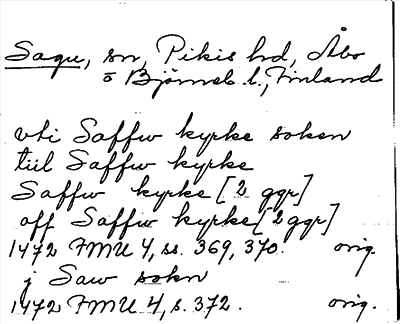 Sagu, sn, Pikis hd, Åbo
o Björneb. l., Finland
vti Saffw kyrke soken
tiil Saffw kyrke
Saffw kyrke [2 ggr]
off Saffw kyrke [2 ggr]
1472 FMU 4, ss. 369, 370. orig.
j Saw sokn
1472 FMU 4, s. 372. orig.